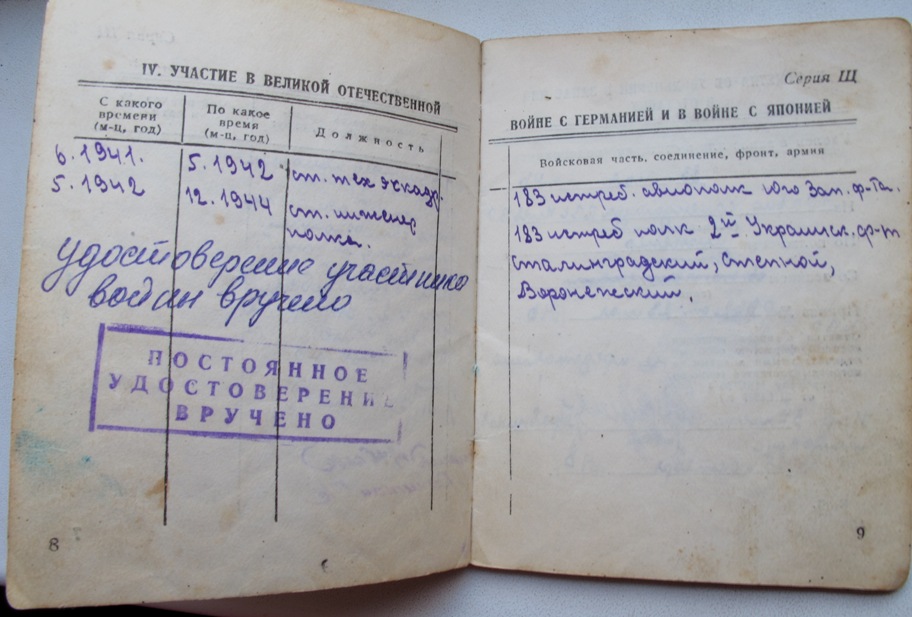 IV. УЧАСТИЕ В ВЕЛИКОЙ ОТЕЧЕСТВЕННОЙ
С какого времени (м-ц, год)
По какое время (м-ц, год)
Должность
6.1941.
5.1942
ст. тех эскадр.
5.1942
12.1944
ст. инженер
полка.
Удостоверение участника
войны вручено
ПОСТОЯННОЕ
УДОСТОВЕРЕНИЕ
ВРУЧЕНО
8
Серия Щ
ВОЙНЕ С ГЕРМАНИЕЙ И В ВОЙНЕ С ЯПОНИЕЙ
Войсковая часть, соединение, фронт, армия
183 истреб. авиополк юго Зап. ф-та.
183 истреб полк 2й Украинск. ф-т
Сталинградский, Степной,
Воронежский.
9